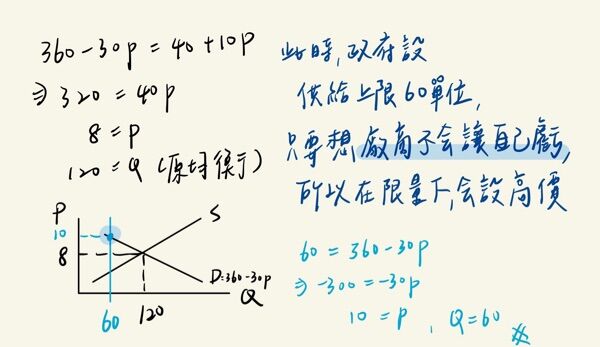 360-30P = 40+10P
⇒ 320 = 40P
8 = P
120 = Q (原均衡)
P
10
8
S
D=360-30P
60
120
Q
此時,政府設
供給上限60單位,
只要想廠商不会讓自己虧,
所以在限量下,会設高價
60 = 360-30P
⇒ -300 = -30P
10 = P , Q=60 #